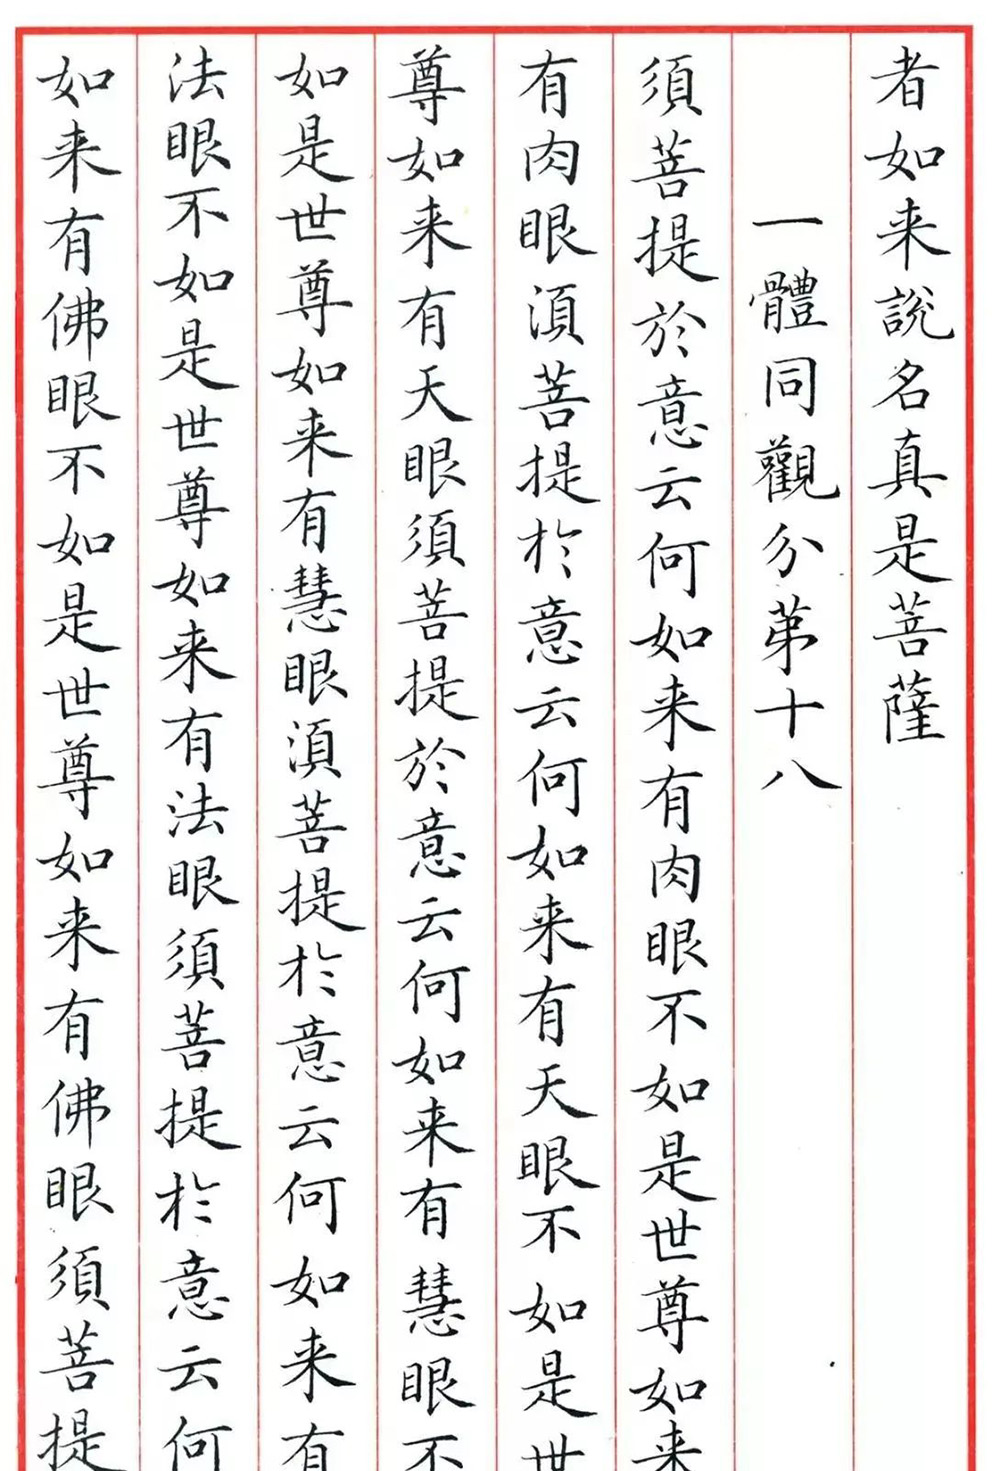 者如来說名真是菩薩
一體同觀分苐十八
須菩提於意云何如来有肉眼不如是世尊如来
有肉眼湏菩提於意云何如来有天眼不如是世
尊如来有天眼須菩提於意云何如来有慧眼不
如是世尊如来有慧眼湏菩提於意云何如来有
法眼不如是世尊如来有法眼須菩提於意云何
如来有佛眼不如是世尊如来有佛眼須菩提